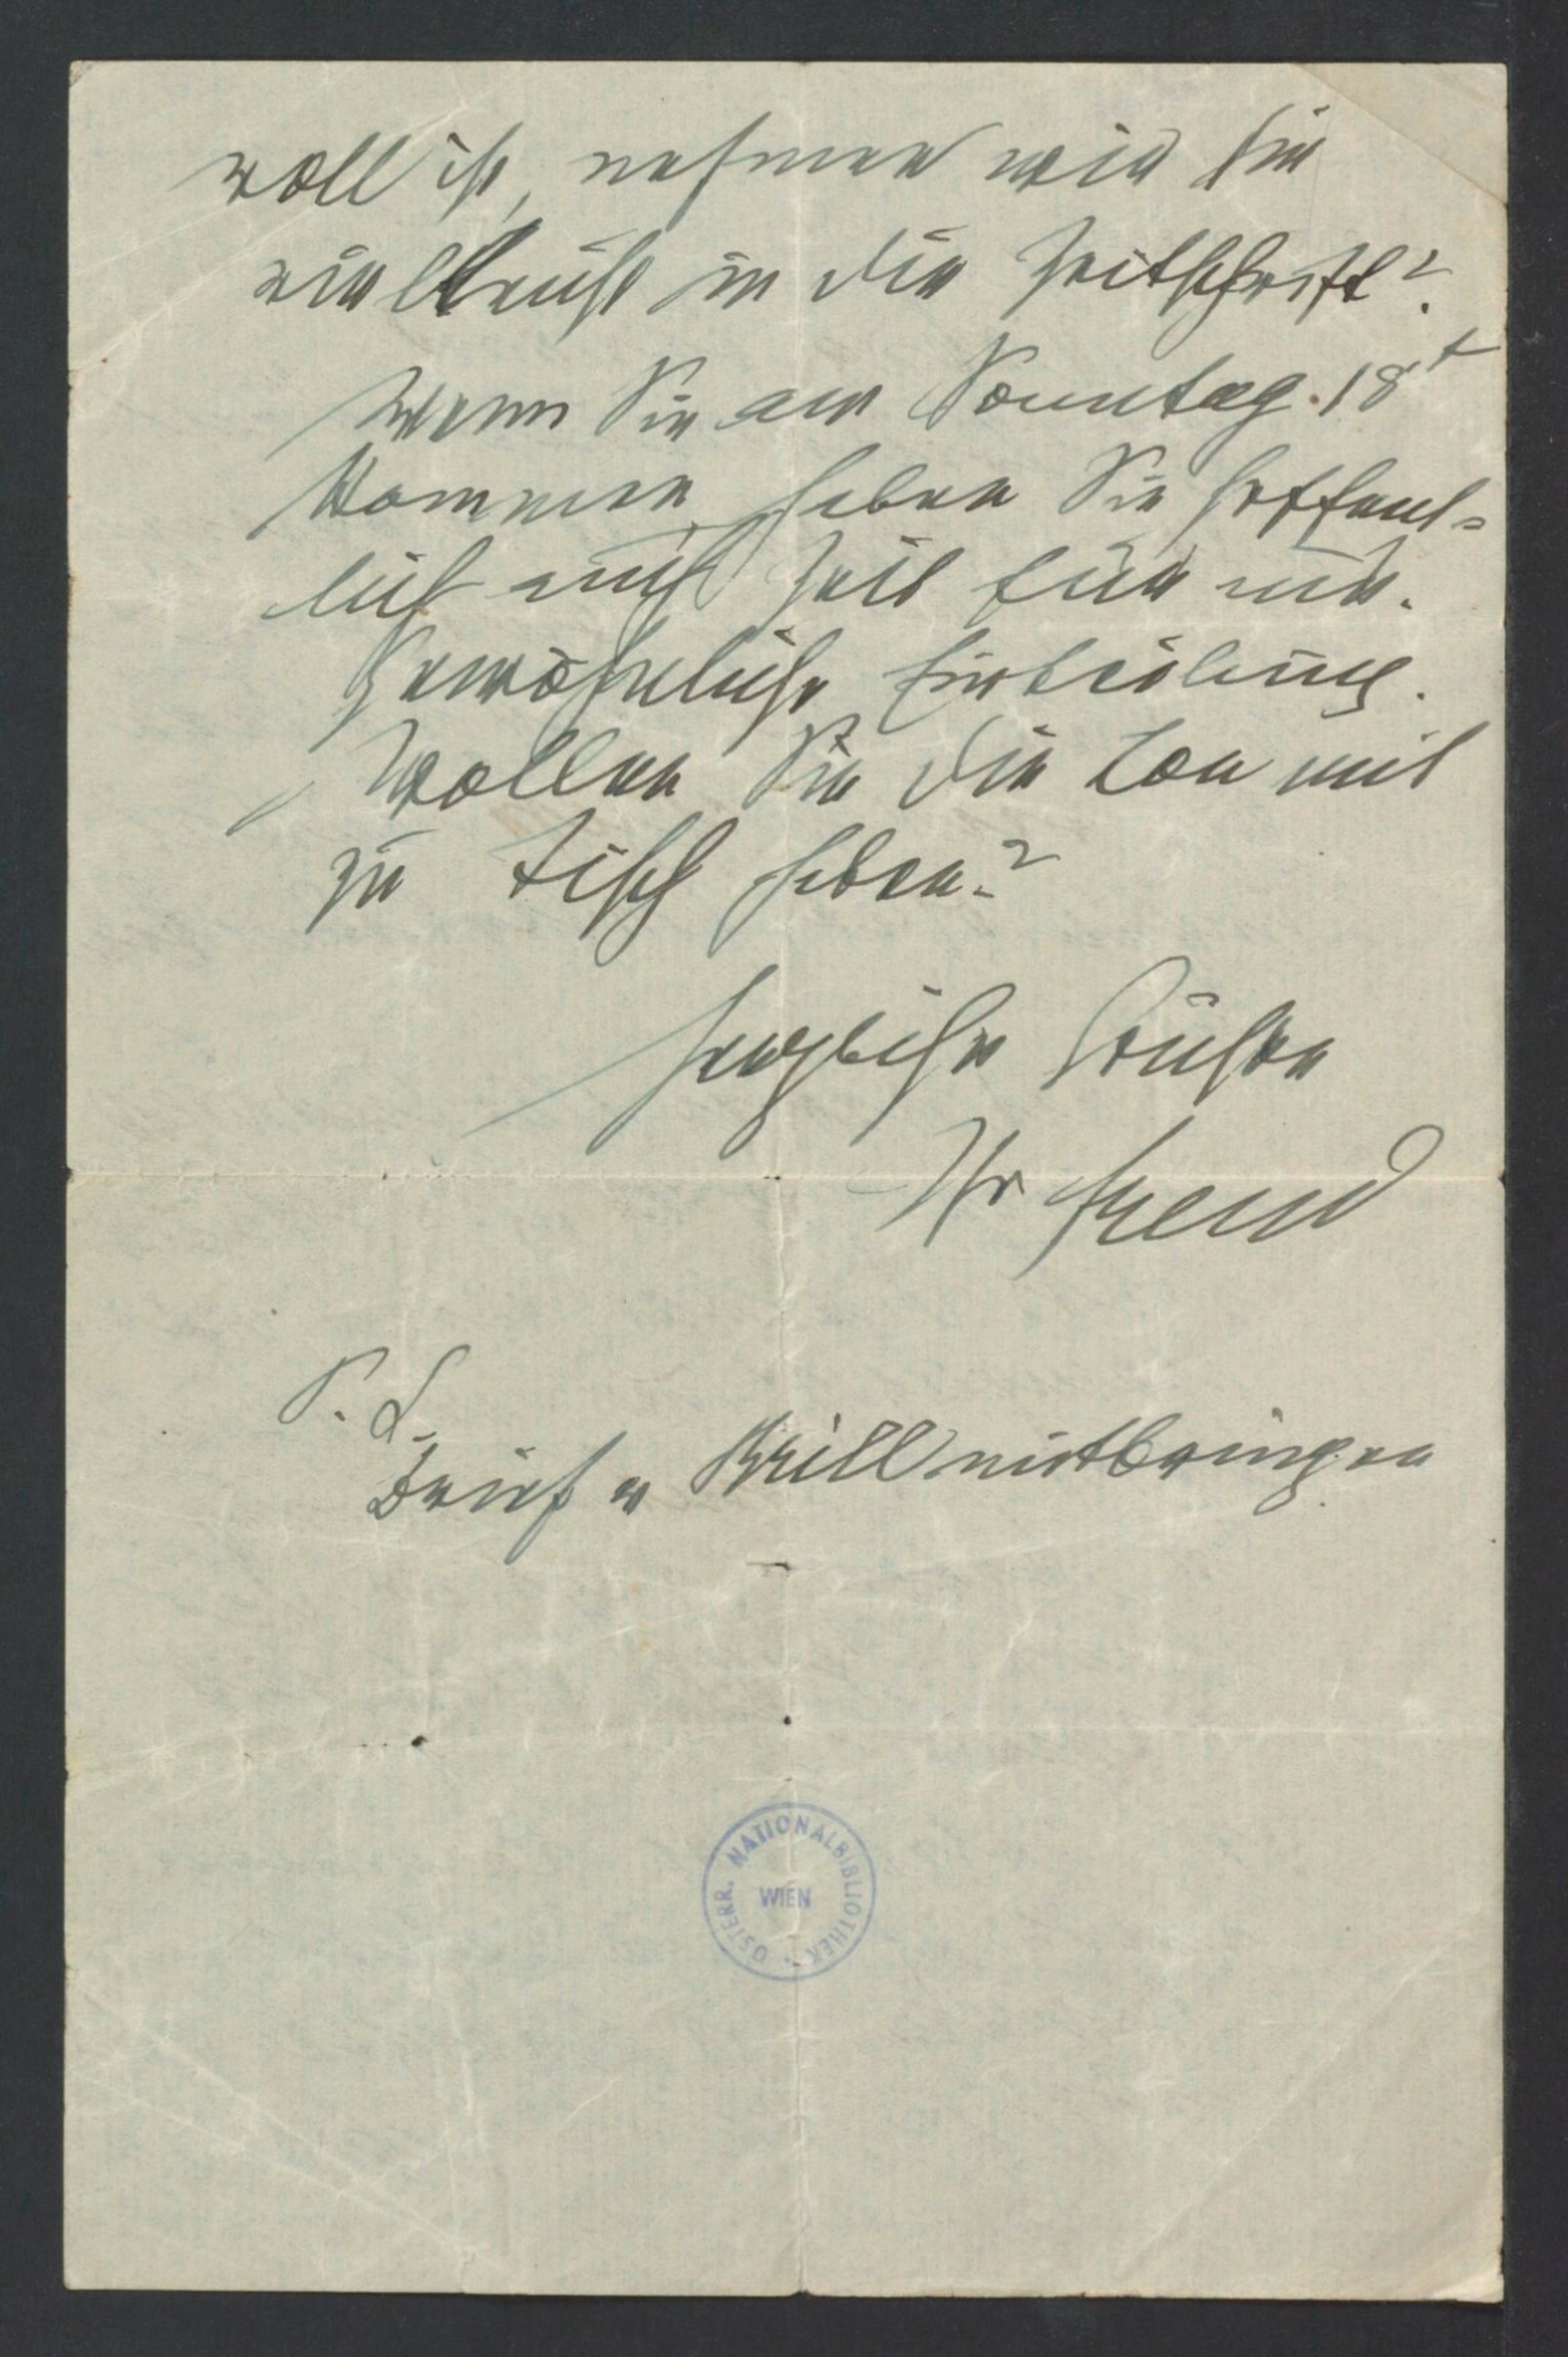 voll ist, nehmen wir sie
vielleicht in die Zeitschrift?
Wenn Sie am Sonntag 18t
kommen, haben Sie hoffent=
lich auch Zeit für uns.
Gewöhnliche Einteilung.
Wollen Sie die Lou mit
zu Tisch haben?
Herzliche Grüße
Ihr Freud
P. S.
Brief v Brill mitbringen
ÖSTERR. NATIONALBIBLIOTHEK
WIEN